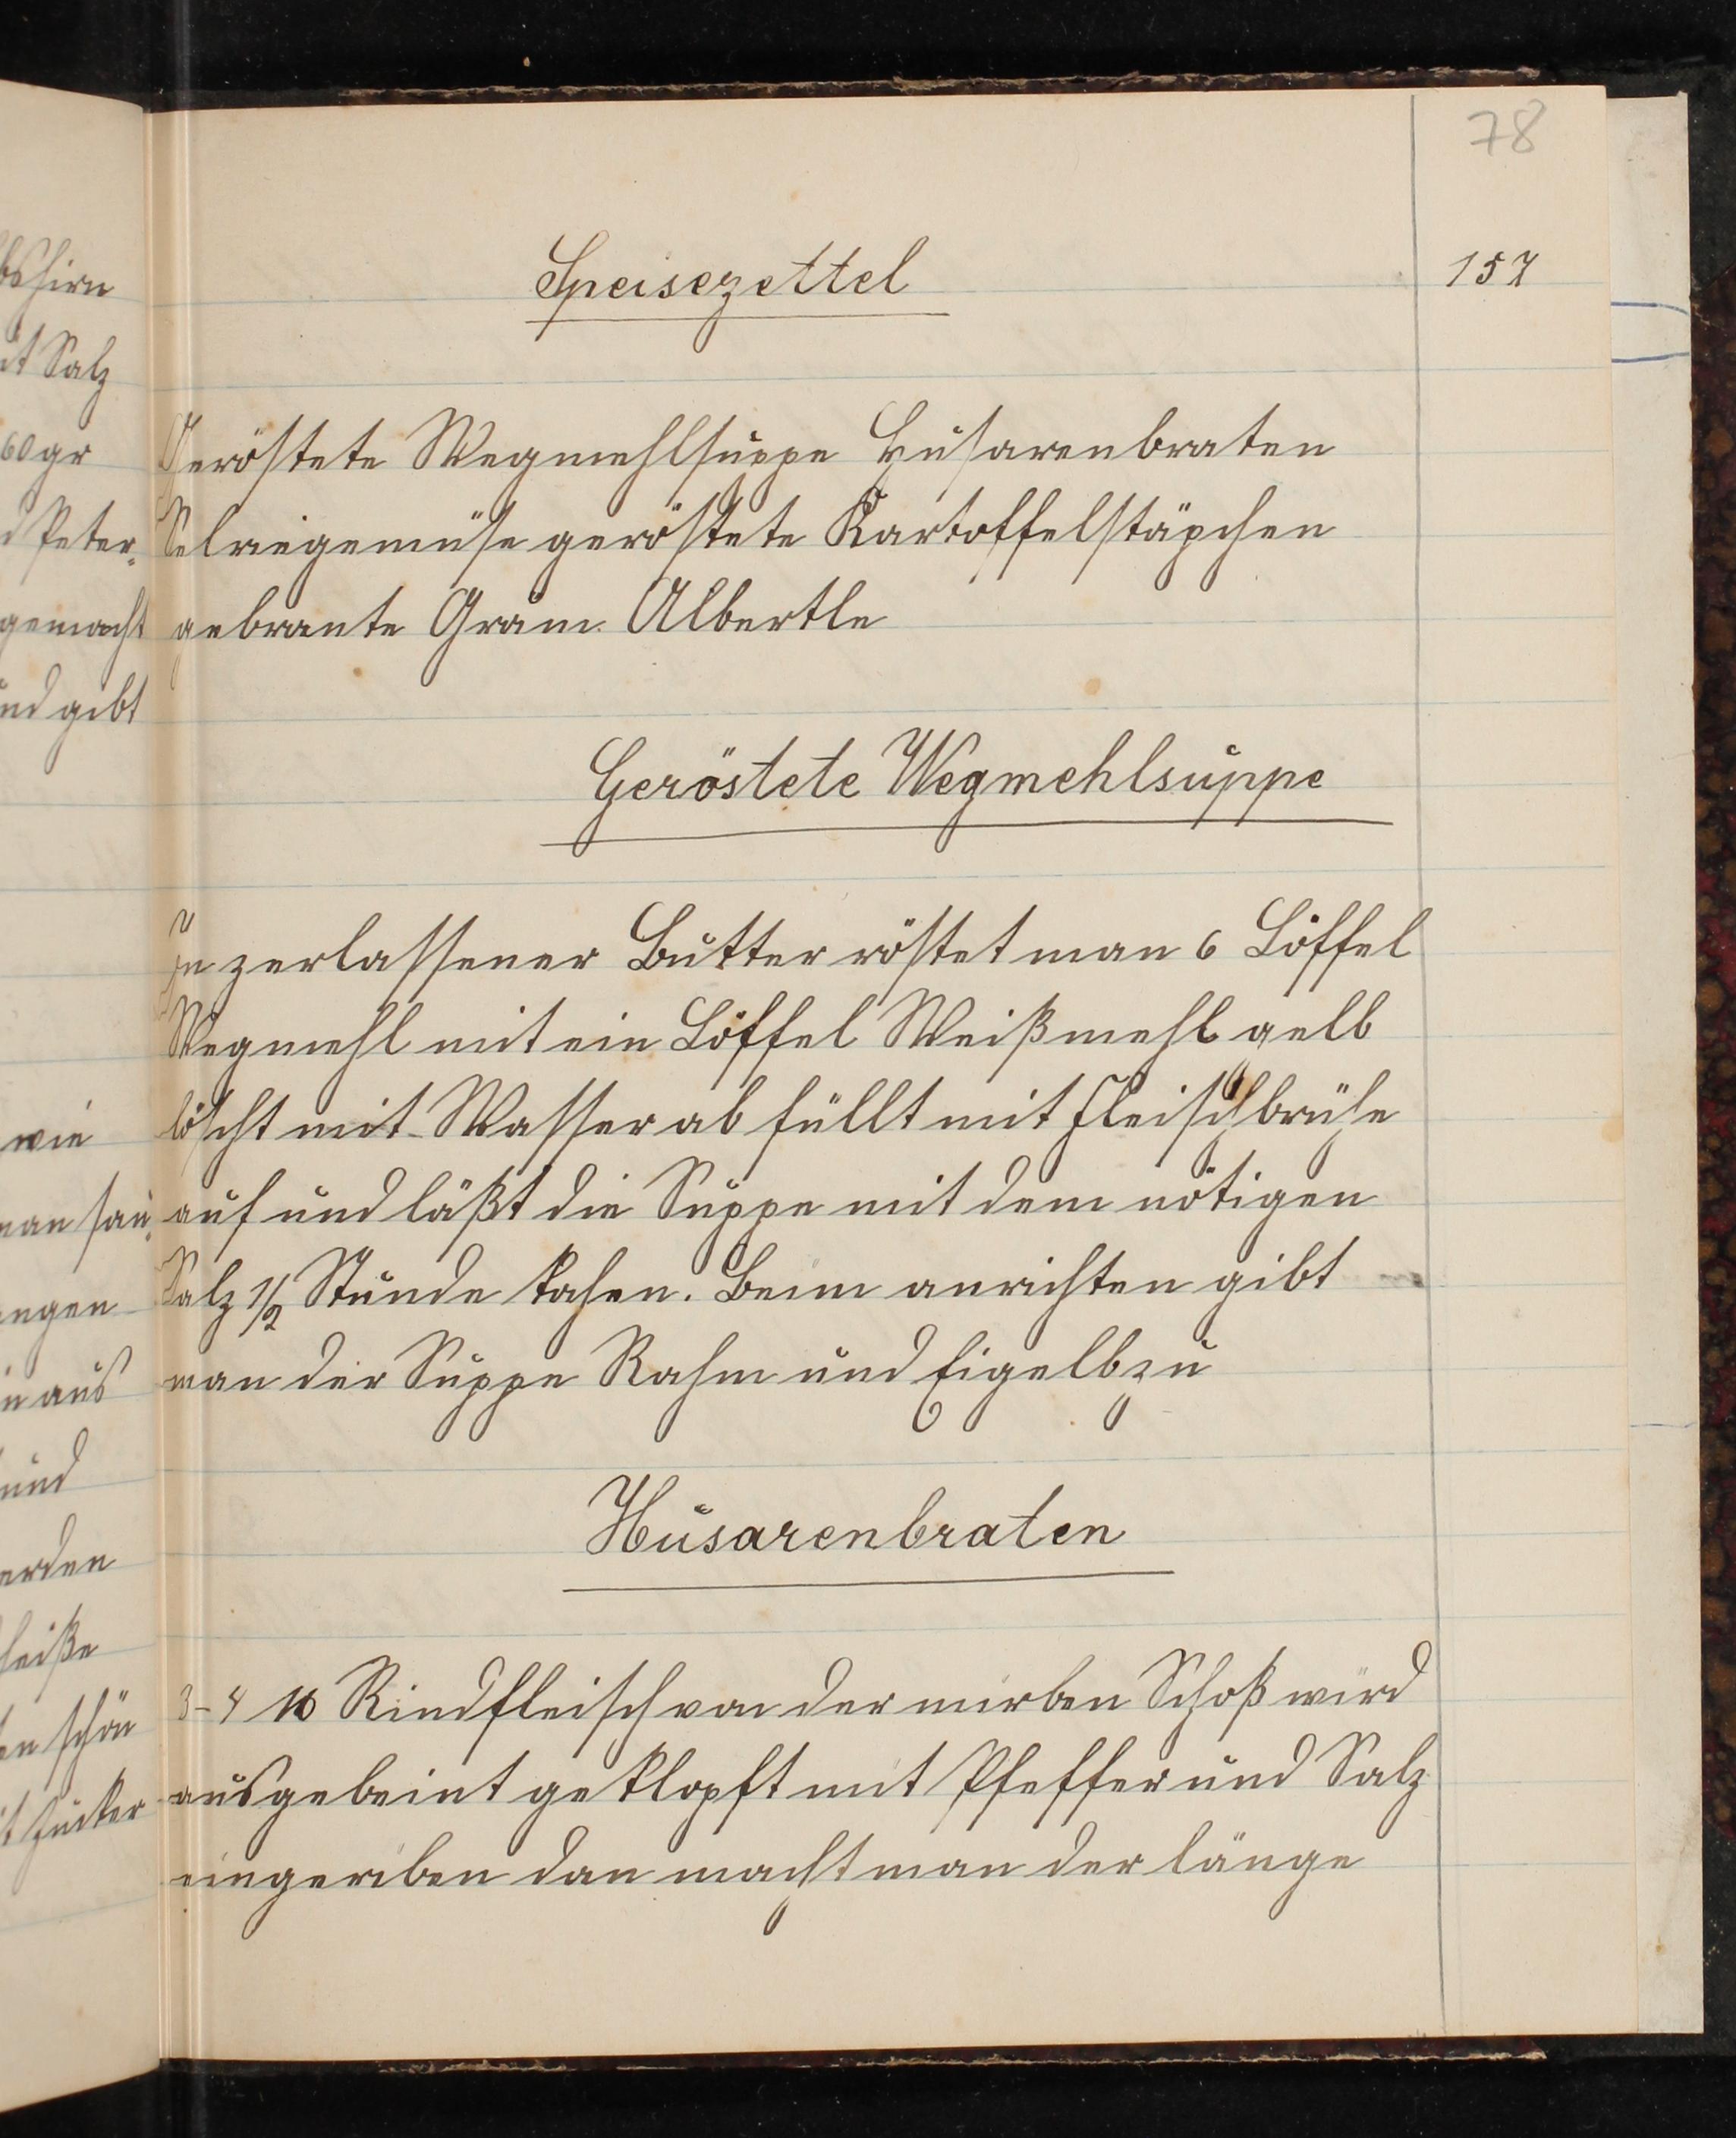 78
Speisezettel 157
Geröstete Wegmehlsuppe Husarenbraten
Selriegemüse geröstete Kartoffelstäpchen
gebrante Gräm. Albertle
Geröstete Wegmehlsuppe
In zerlassener Butter röstet man 6 Löffel
Wegmehl mit ein Löffel Weißmehl gelb
löscht mit Wasser ab füllt mit Fleischbrühe
auf und läßt die Suppe mit dem nötigen
Salz 1/2 Stunde kohen. Beim anrichten gibt
man der Suppe Rahm und Eigelb zu
Husarenbraten
3-4 ℔ Rindfleisch von der mirben Schoß wird
ausgebeint geklopft mit Pfeffer und Salz
eingeriben dan macht man der länge
hirn
it Salz
60 gr
d Peter-
gemacht
und gibt
wie
man sau-
ngen
in aus
und
erden
heiße
en schön
it Zucker